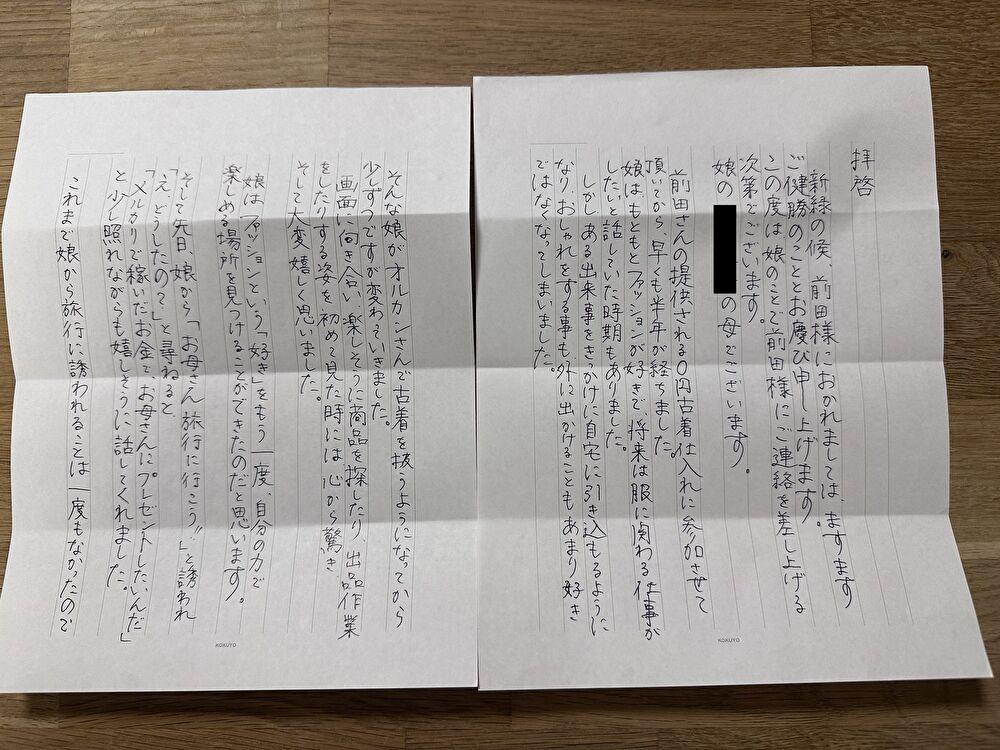 拝啓
新緑の候、前田様におかれましては、ますます
ご健勝のこととお慶び申し上げます。
この度は娘のことで前田様にご連絡を差し上げる
次第でございます。
娘の
の母でございます。
前田さんの提供される0円古着仕入れに参加させて
頂いてから、早くも半年が経ちました。
娘はもともとファッションが好きで、将来は服に関わる仕事が
したいと話していた時期もありました。
しかし、ある出来事をきっかけに自宅に引き込もるように
なり、おしゃれをする事も、外に出かけることもあまり好き
ではなくなってしまいました。
そんな娘がオルカンさんで古着を扱うようになってから
少しずつですが変わっていきました。
画面に向き合い、楽しそうに商品を探したり、出品作業
をしたりする姿を初めて見た時には心から驚き
そして大変嬉しく思いました。
娘はファッションという「好き」をもう一度、自分の力で
楽しめる場所を見つけることができたのだと思います。
そして先日、娘から「お母さん旅行に行こう!!」と誘われ
「え、どうしたの?」と尋ねると
「メルカリで稼いだお金でお母さんにプレゼントしたいんだ」
と少し照れながらも嬉しそうに話してくれました。
これまで娘から旅行に誘われることは一度もなかったので
KOKUYO
KOKUYO